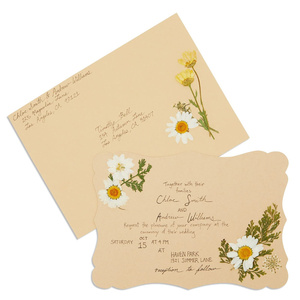 Chloe Smith & Andrew Williams
Los Angeles, CA
Timothy Ball
Los Angeles, CA
Together with their
families
Chloe Smith
AND
Andrew Williams
Request the pleasure of your company at the
ceremony of their wedding
SATURDAY OCT 15 AT 4 PM
AT
HAVEN PARK
1901 SUMMER LANE
Reception to follow